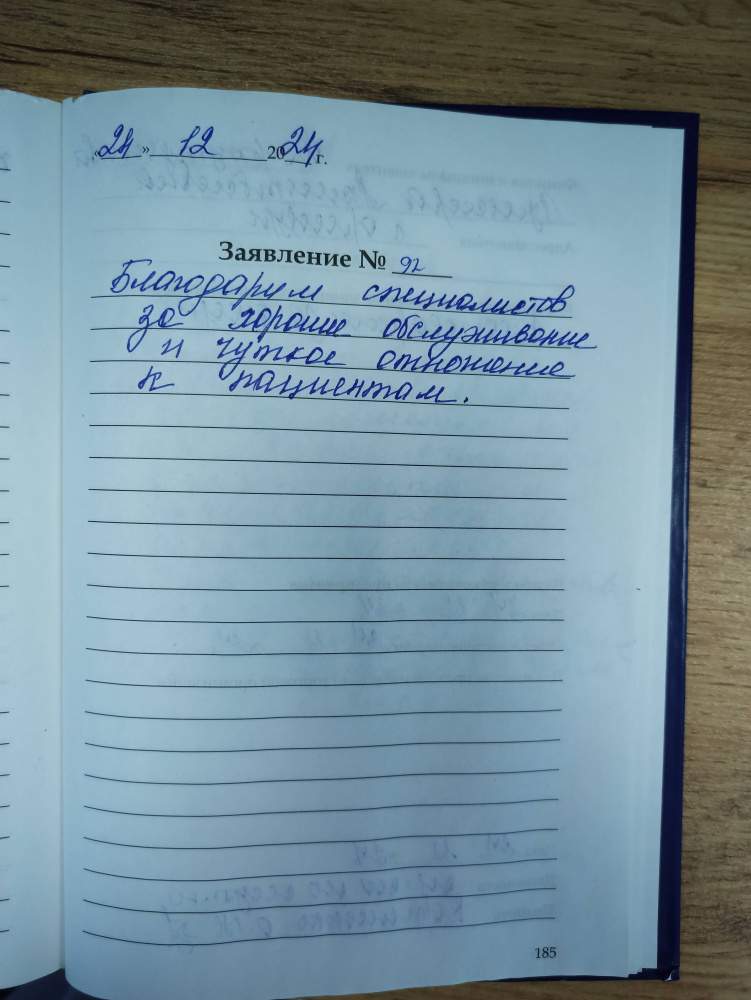 «24» 12 2024 г.
Заявление № 92
Благодарим специалистов
за хорошие обслуживание
и чуткое отношение
к пациентам.
185